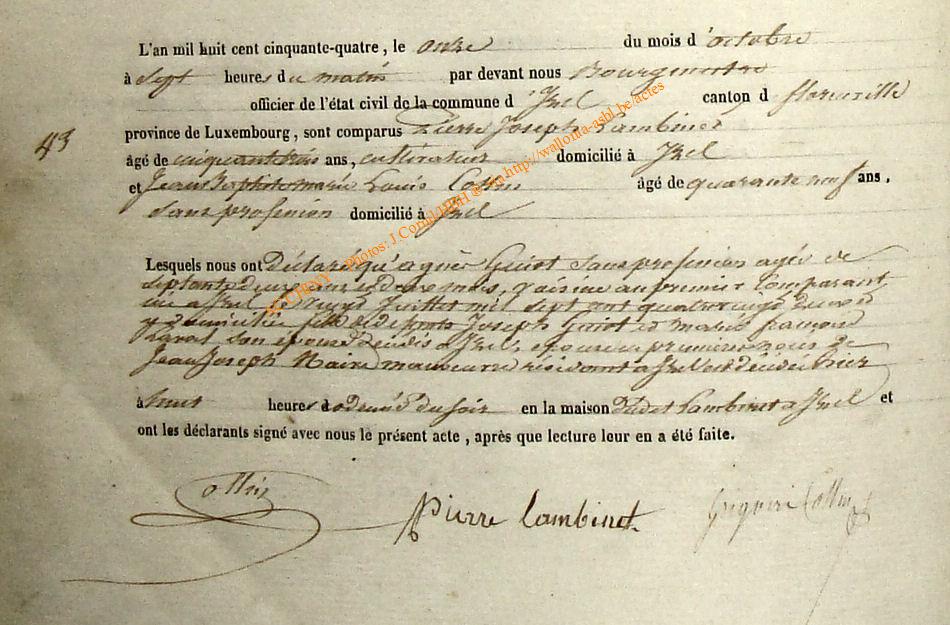 L'an mil huit cent cinquante-quatre, le onze du mois d'octobre
à sept heures du matin par devant nous Bourgmestre
officier de l'état civil de la commune d'Izel canton d florenville
43
province de Luxembourg, sont comparus Pierre Joseph Lambinet
âgé de cinquante trois ans, cultivateur domicilié à Izel
et Jean Baptiste marie Louis âgé de quarante neuf ans,
sans profession domicilié à Izel
Lesquels nous ont Déclaré qu'agnès Guiot sans profession agée de
septante deux ans et deux mois, au premier Comparant
née a Izel le Juillet mil sept cent quatre vingt deux et
y domiciliée fille de Joseph Guiot et marie françoise
son épouse décédés a Izel, en premières noces de
Jean Joseph résidant a Izel est décédée hier
à huit heures et demie du soir en la maison dudit Lambinet a Izel et
ont les déclarants signé avec nous le présent acte, après que lecture leur en a été faite.
Pierre Lambinet
© CHINY - Photos: J.Cornil/HBH @ via http://wallonia-asbl.be/actes